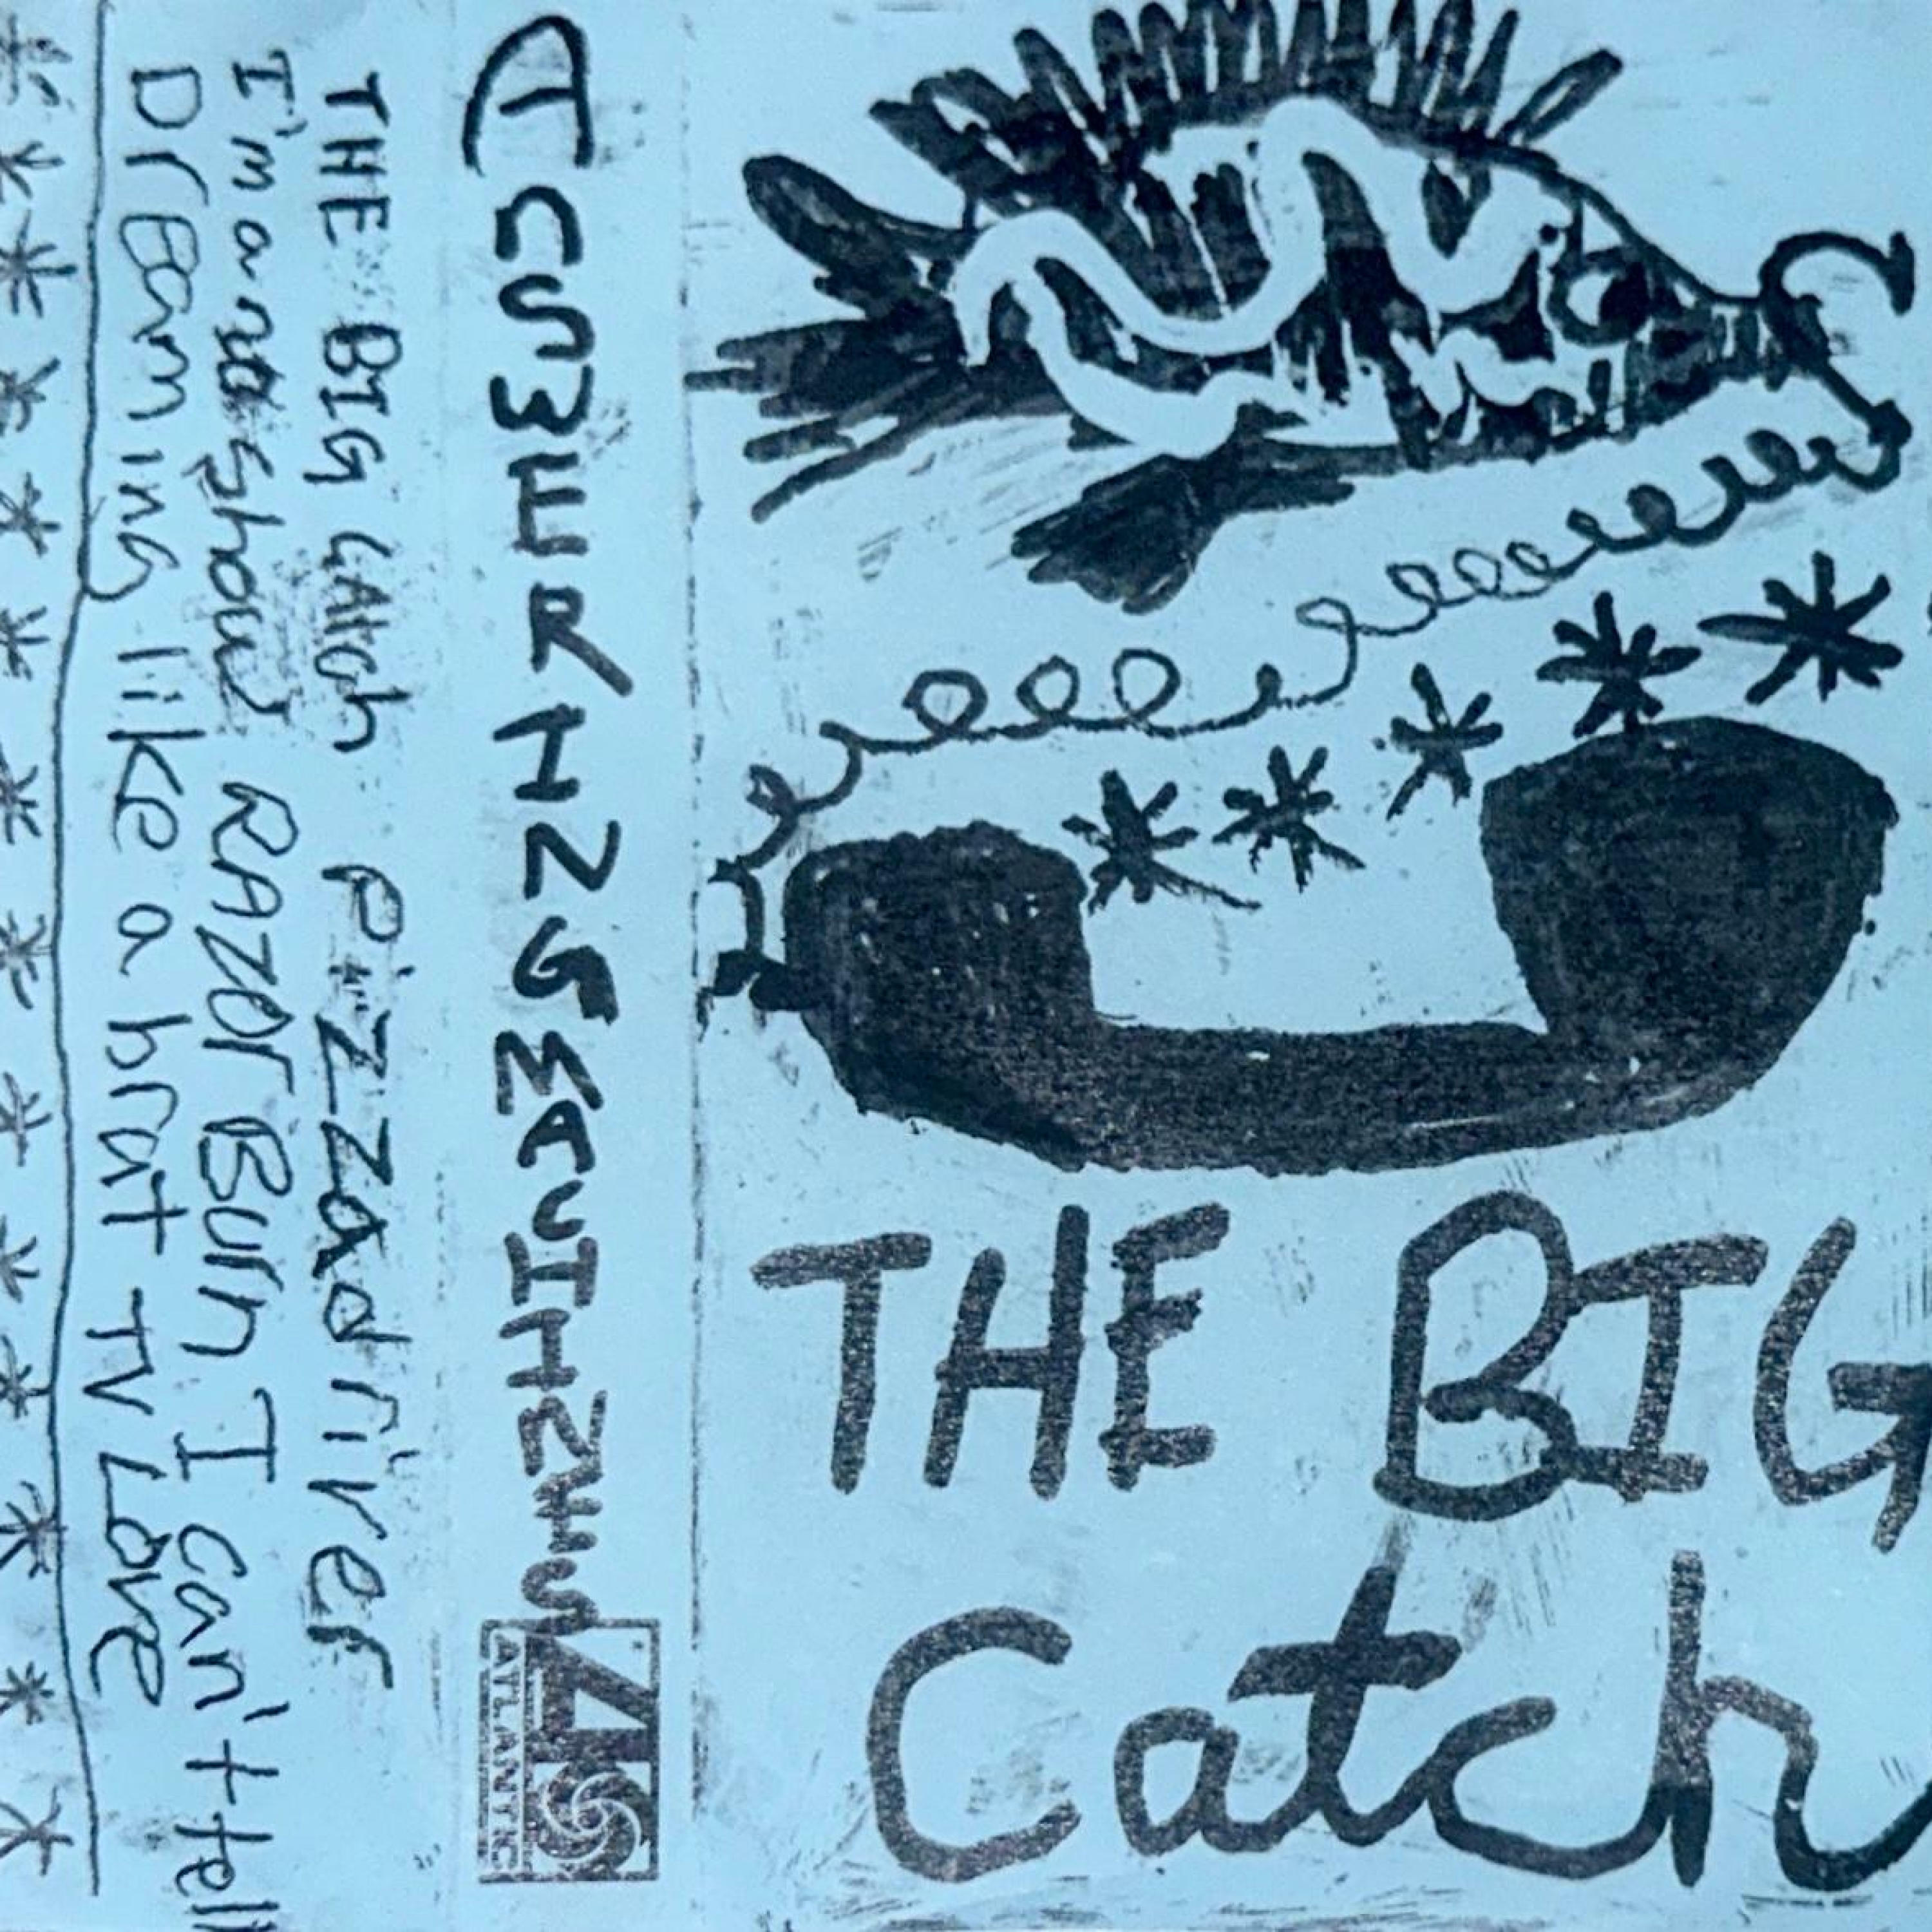 THE BIG
Catch
ANSWERING MACHINES
ATLANTIC
THE BIG CAtch Pizzadriver
I'm a no show RAZOr Burn I can't tell
Dreaming like a brat TV Love